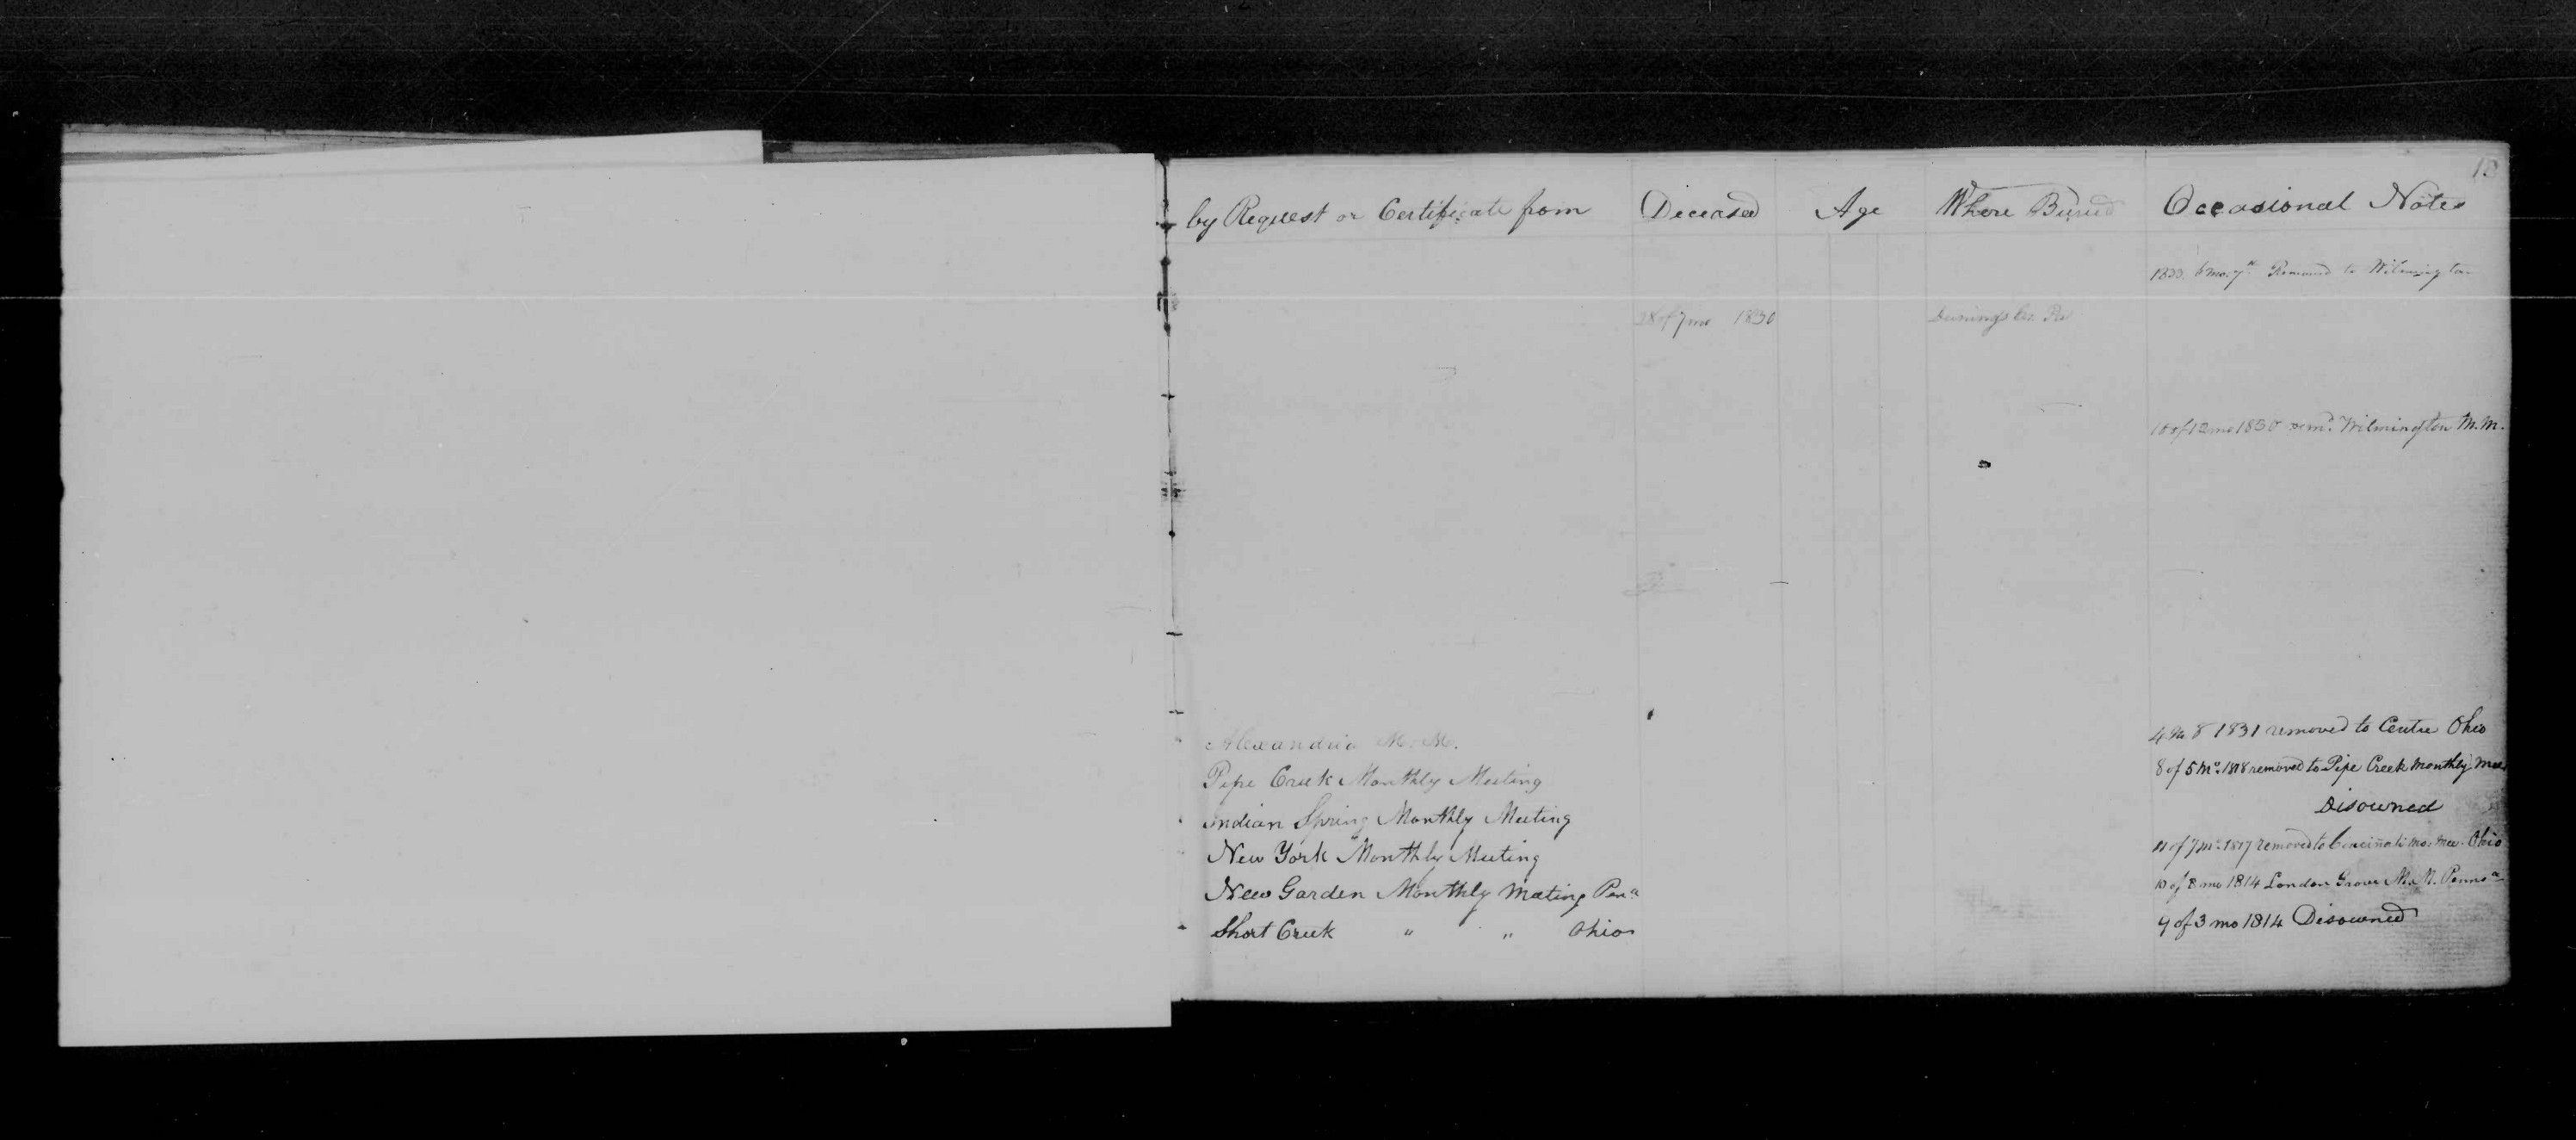 by Request or Certificate from Deceased Age Where Buried Occasional Notes
6mo. 7th Removed to Wilmington
28 of 7 mo 1830
12 mo 1830 Wilmington M. M.
Alexandria M. M. 1831 removed to Centre Ohio
Pipe Creek Monthly Meeting 8 of 5 Mo. 1818 removed to Pipe Creek Monthly Mee
Indian Spring Monthly Meeting Disowned
New York Monthly Meeting of 7 Mo. 1817 removed to Mo. Mee. Ohio
New Garden Monthly Meeting Pena 10 of 8 mo 1814 London Grove M. M. Pennsa
Short Creek " " Ohio 9 of 3 mo 1814 Disowned